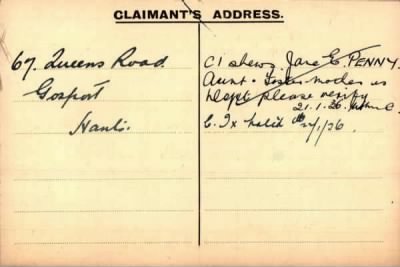 CLAIMANT'S ADDRESS.
67. Queens Road
Gosport
Hants.
C1 shews Jane E. PENNY.
Aunt & Foster Mother as
Dept please verify
21.1.26.
22/1/26.